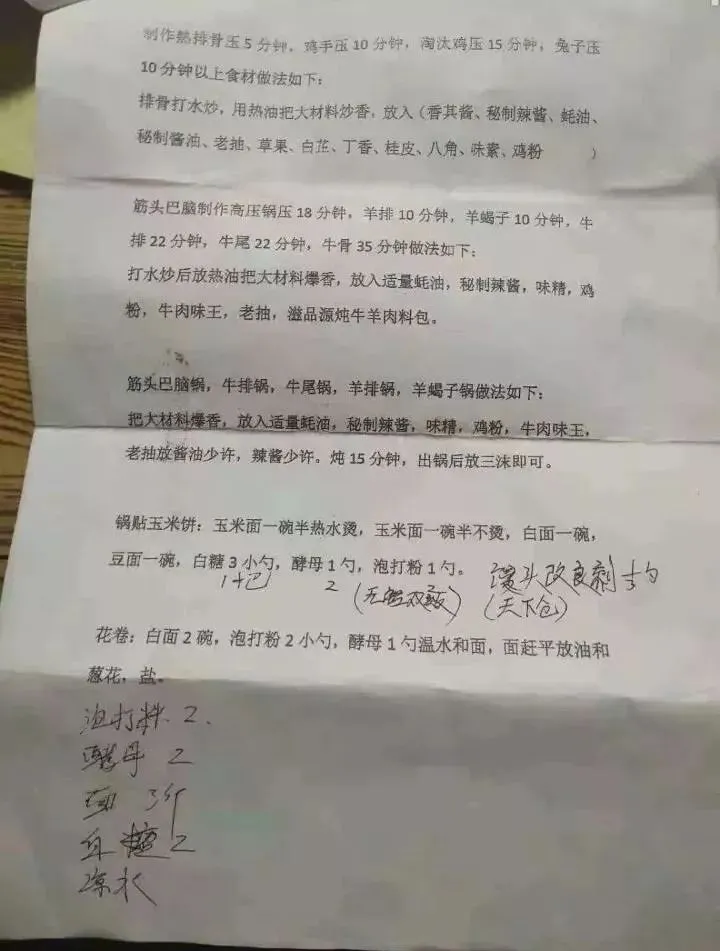 制作熟排骨压 5 分钟，鸡手压 10 分钟，淘汰鸡压 15 分钟，兔子压
10 分钟以上食材做法如下：
排骨打水炒，用热油把大材料炒香，放入（香其酱、秘制辣酱、蚝油、
秘制酱油、老抽、草果、白芷、丁香、桂皮、八角、味素、鸡粉 ）
筋头巴脑制作高压锅压 18 分钟，羊排 10 分钟，羊蝎子 10 分钟，牛
排 22 分钟，牛尾 22 分钟，牛骨 35 分钟做法如下：
打水炒后放热油把大材料爆香，放入适量蚝油，秘制辣酱，味精，鸡
粉，牛肉味王，老抽，滋品源炖牛羊肉料包。
筋头巴脑锅，牛排锅，牛尾锅，羊排锅，羊蝎子锅做法如下：
把大材料爆香，放入适量蚝油，秘制辣酱，味精，鸡粉，牛肉味王，
老抽放酱油少许，辣酱少许。炖 15 分钟，出锅后放三沫即可。
锅贴玉米饼：玉米面一碗半热水烫，玉米面一碗半不烫，白面一碗，
豆面一碗，白糖 3 小勺，酵母 1 勺，泡打粉 1 勺。 馒头改良剂
2 (天下仓)
花卷：白面 2 碗，泡打粉 2 小勺，酵母 1 勺温水和面，面赶平放油和
葱花，盐。
泡打粉 2.
酵母 2
面 3斤
白糖 2
凉水